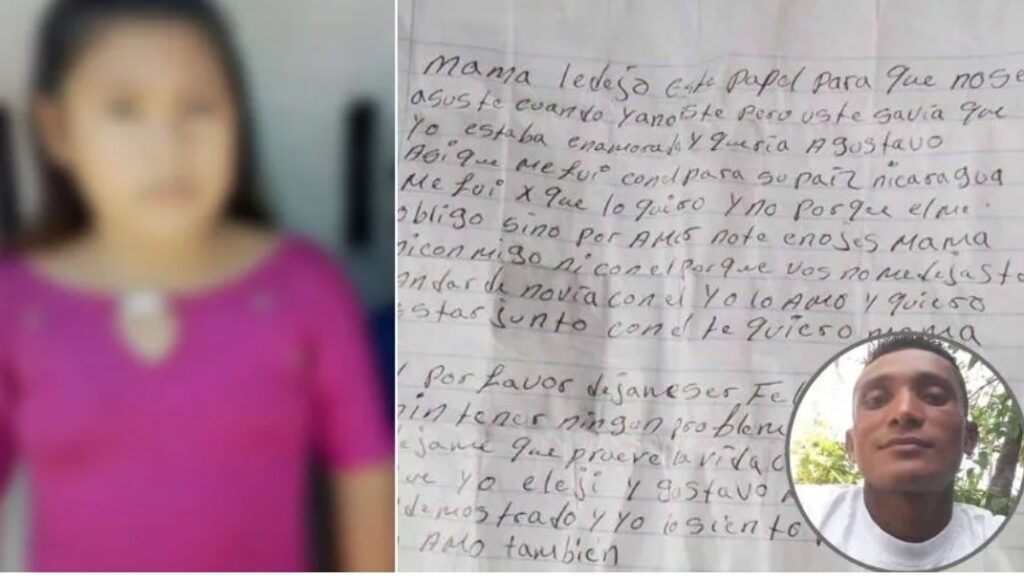 Mama ledejo este papel para que nose
asuste cuando yanoiste pero uste savia que
Yo estaba enamorada y queria A gustavo
Asi que me fui conel para su paiz nicaragua
Me fui x que lo quiro y no porque el me
obligo sino por AMOR note enojes Mama
niconmigo niconel porque vos no me dejaste
andar de novia con el Yo lo AMO y quiero
estar junto conel te quiero mama
por favor dejameser
sin tener ningun problema
dejame que prueve la vida
que yo eleji y gustavo
demostrado y yo lo siento
AMO también